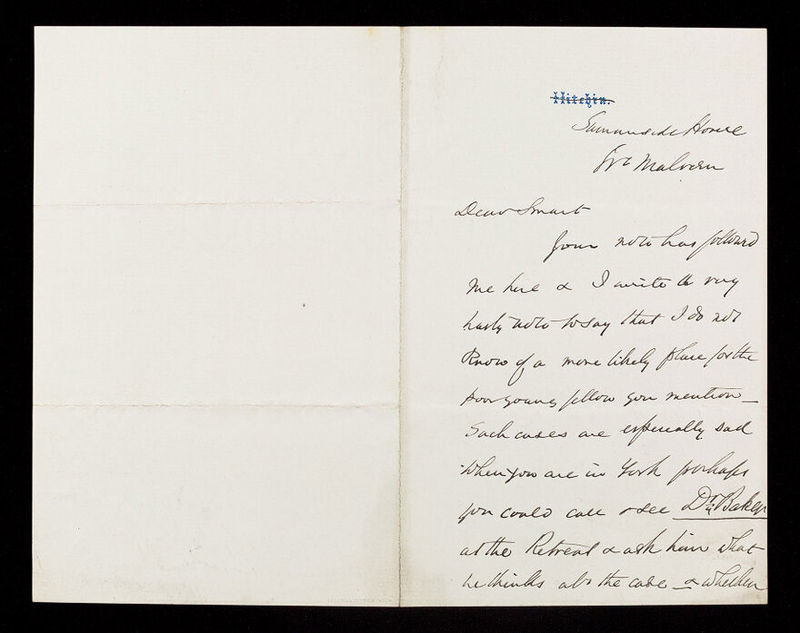 Hitchin.
House
Gt Malvern
Dear Smart
Your note has followed
me here & I write a very
hasty note to say that I do not
know of a more likely place for the
poor young fellow you mention _
Such cases are especially sad
When you are in York perhaps
you could call & see Dr. Baker
at the Retreat & ask him what
he thinks abt the case _ & whether